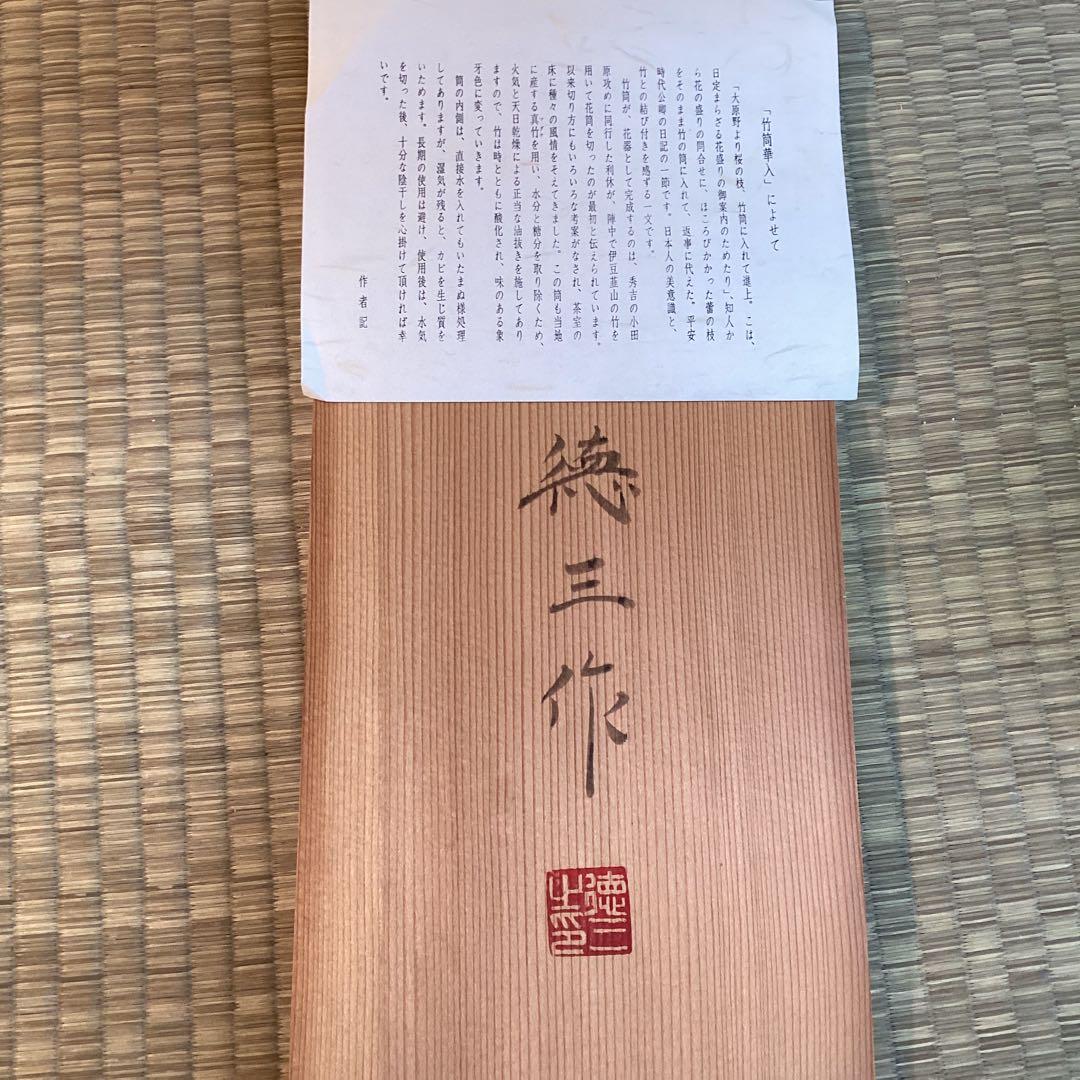 「竹筒華入」によせて
「大原野より桜の枝、竹筒に入れて進上。こは、
日定まらざる花盛りの御案内のためたり」、知人か
ら花の盛りの問合せに、ほころびかかった蕾の枝
をそのまま竹の筒に入れて、返事に代えた。平安
時代公卿の日記の一節です。日本人の美意識と、
竹との結び付きを感ずる一文です。
竹筒が、花器として完成するのは、秀吉の小田
原攻めに同行した利休が、陣中で伊豆韮山の竹を
用いて花筒を切ったのが最初と伝えられています。
以来切り方にもいろいろな考案がなされ、茶室の
床に種々の風情をそえてきました。この筒も当地
に産する真竹を用い、水分と糖分を取り除くため、
火気と天日乾燥による正当な油抜きを施してあり
ますので、竹は時とともに酸化され、味のある象
牙色に変っていきます。
筒の内側は、直接水を入れてもいたまぬ様処理
してありますが、湿気が残ると、カビを生じ質を
いためます。長期の使用は避け、使用後は、水気
を切った後、十分な陰干しを心掛けて頂ければ幸
いです。
作者記
徳三作
徳三
之印